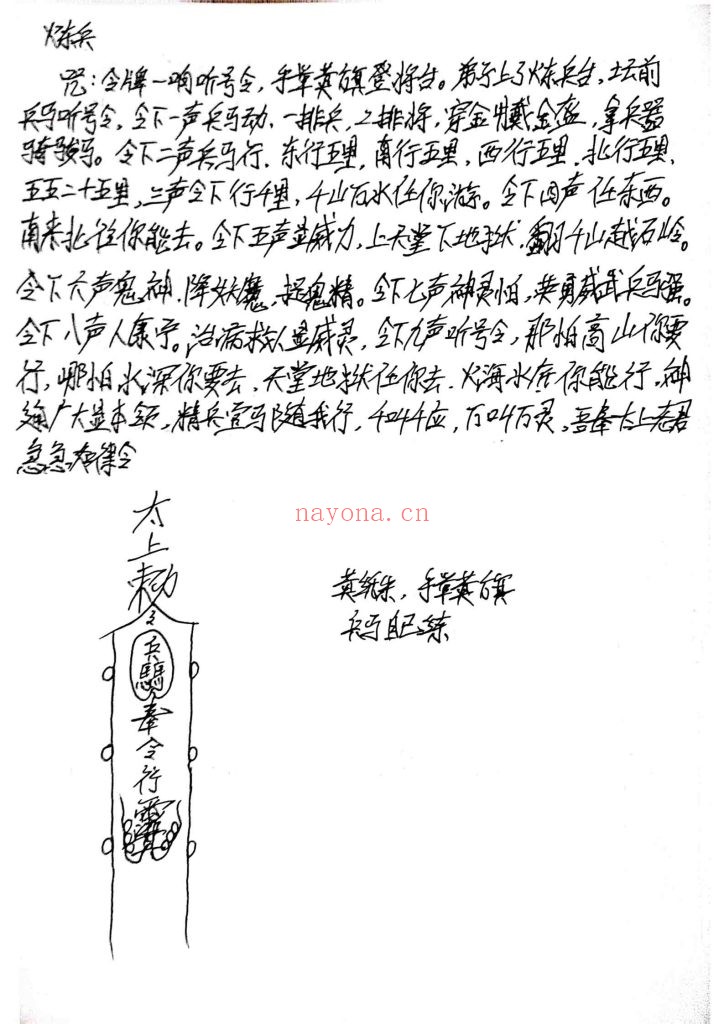 炼兵
咒：令牌一响听号令，手拿黄旗登将台。弟子上了炼兵台，坛前
兵马听号令，令下一声兵马动，一排兵，2排将，穿金甲戴金盔，拿兵器
骑骏马。令下二声兵马行，东行五里，南行五里，西行五里，北行五里，
五五二十五里，三声令下行千里，千山万水任你游。令下四声任东西。
南来北往你能去。令下五声显威力，上天堂下地狱，翻千山越石岭。
令下六声鬼神，降妖魔，捉鬼精。令下七声神灵怕，英勇威武兵马强。
令下八声人康宁。治病救人显威灵，令下九声听号令，那怕高山你要
行，哪怕水深你要去，天堂地狱任你去，火海水底你能行，神
通广大显本领，精兵官马随我行，千叫千应，万叫万灵，吾奉太上老君
急急如律令
太上敕令
兵马
奉令行
黄纸朱，手拿黄旗
兵马自己练
nayona.cn